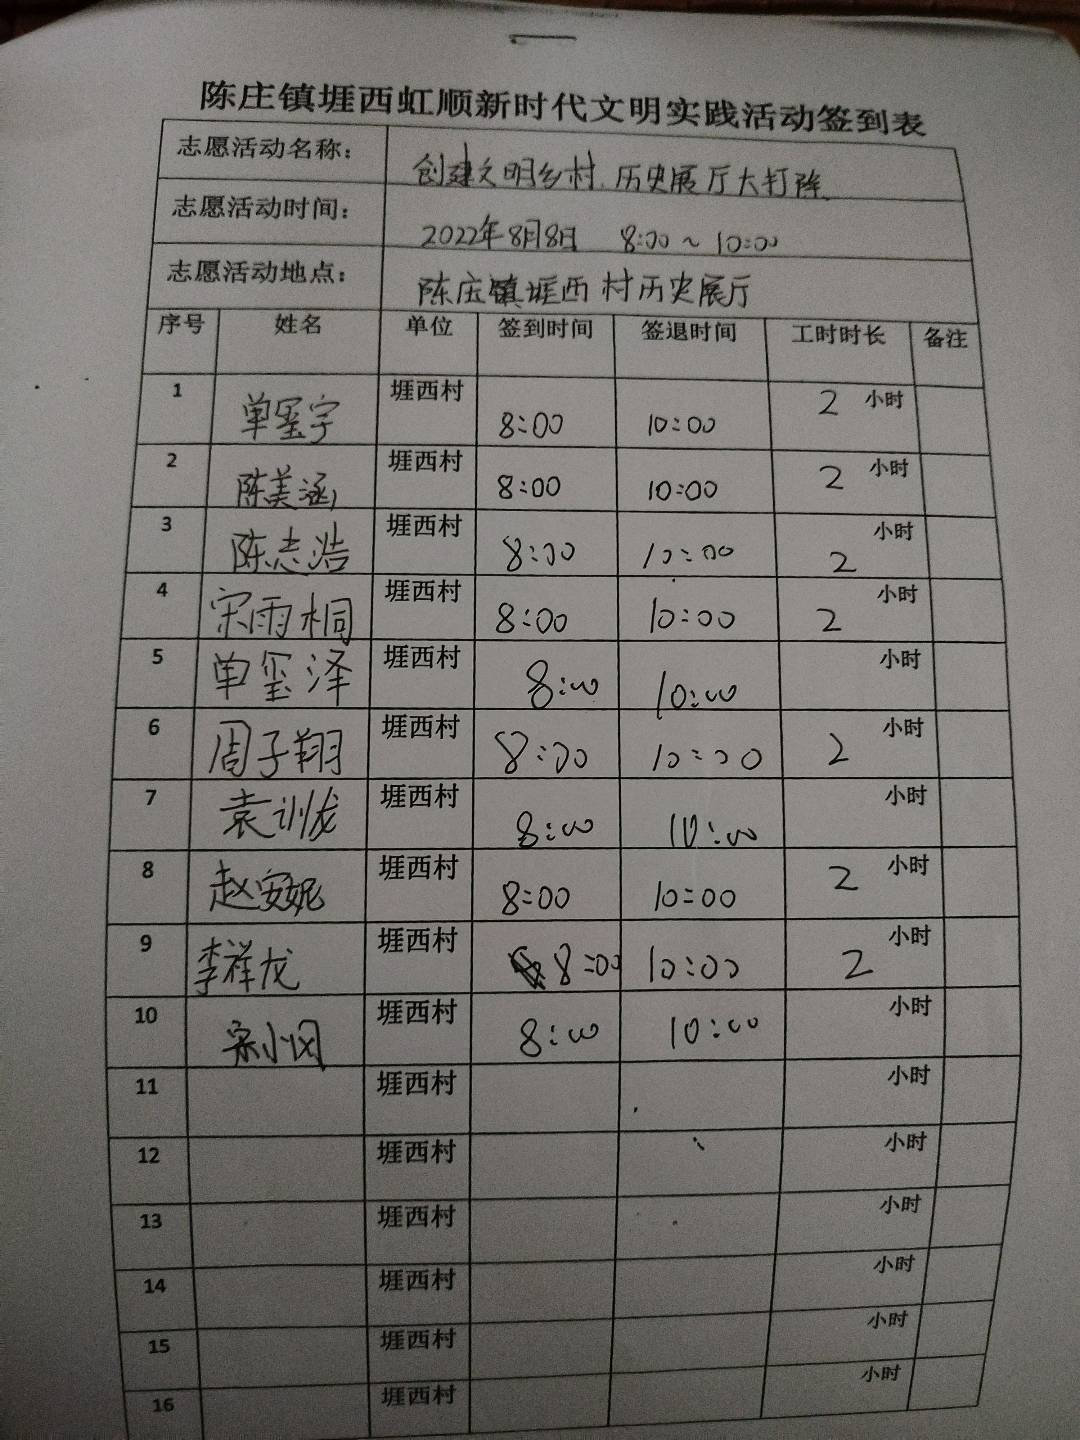 陈庄镇堐西虹顺新时代文明实践活动签到表
志愿活动名称： 创建文明乡村.历史展厅大打除
志愿活动时间： 2022年8月8日 8:00~10:00
志愿活动地点： 陈庄镇堐西村历史展厅
序号 姓名 单位 签到时间 签退时间 工时时长 备注
1 单玺宇 堐西村 8:00 10:00 2 小时
2 陈美涵 堐西村 8:00 10:00 2 小时
3 陈志浩 堐西村 8:00 10:00 2 小时
4 宋雨桐 堐西村 8:00 10:00 2 小时
5 单玺泽 堐西村 8:00 10:00 小时
6 周子翔 堐西村 8:00 10:00 2 小时
7 袁训龙 堐西村 8:00 10:00 小时
8 赵安妮 堐西村 8:00 10:00 2 小时
9 李祥龙 堐西村 8:00 10:00 2 小时
10 宋小 堐西村 8:00 10:00 小时
11 堐西村 小时
12 堐西村 小时
13 堐西村 小时
14 堐西村 小时
15 堐西村 小时
16 堐西村 小时